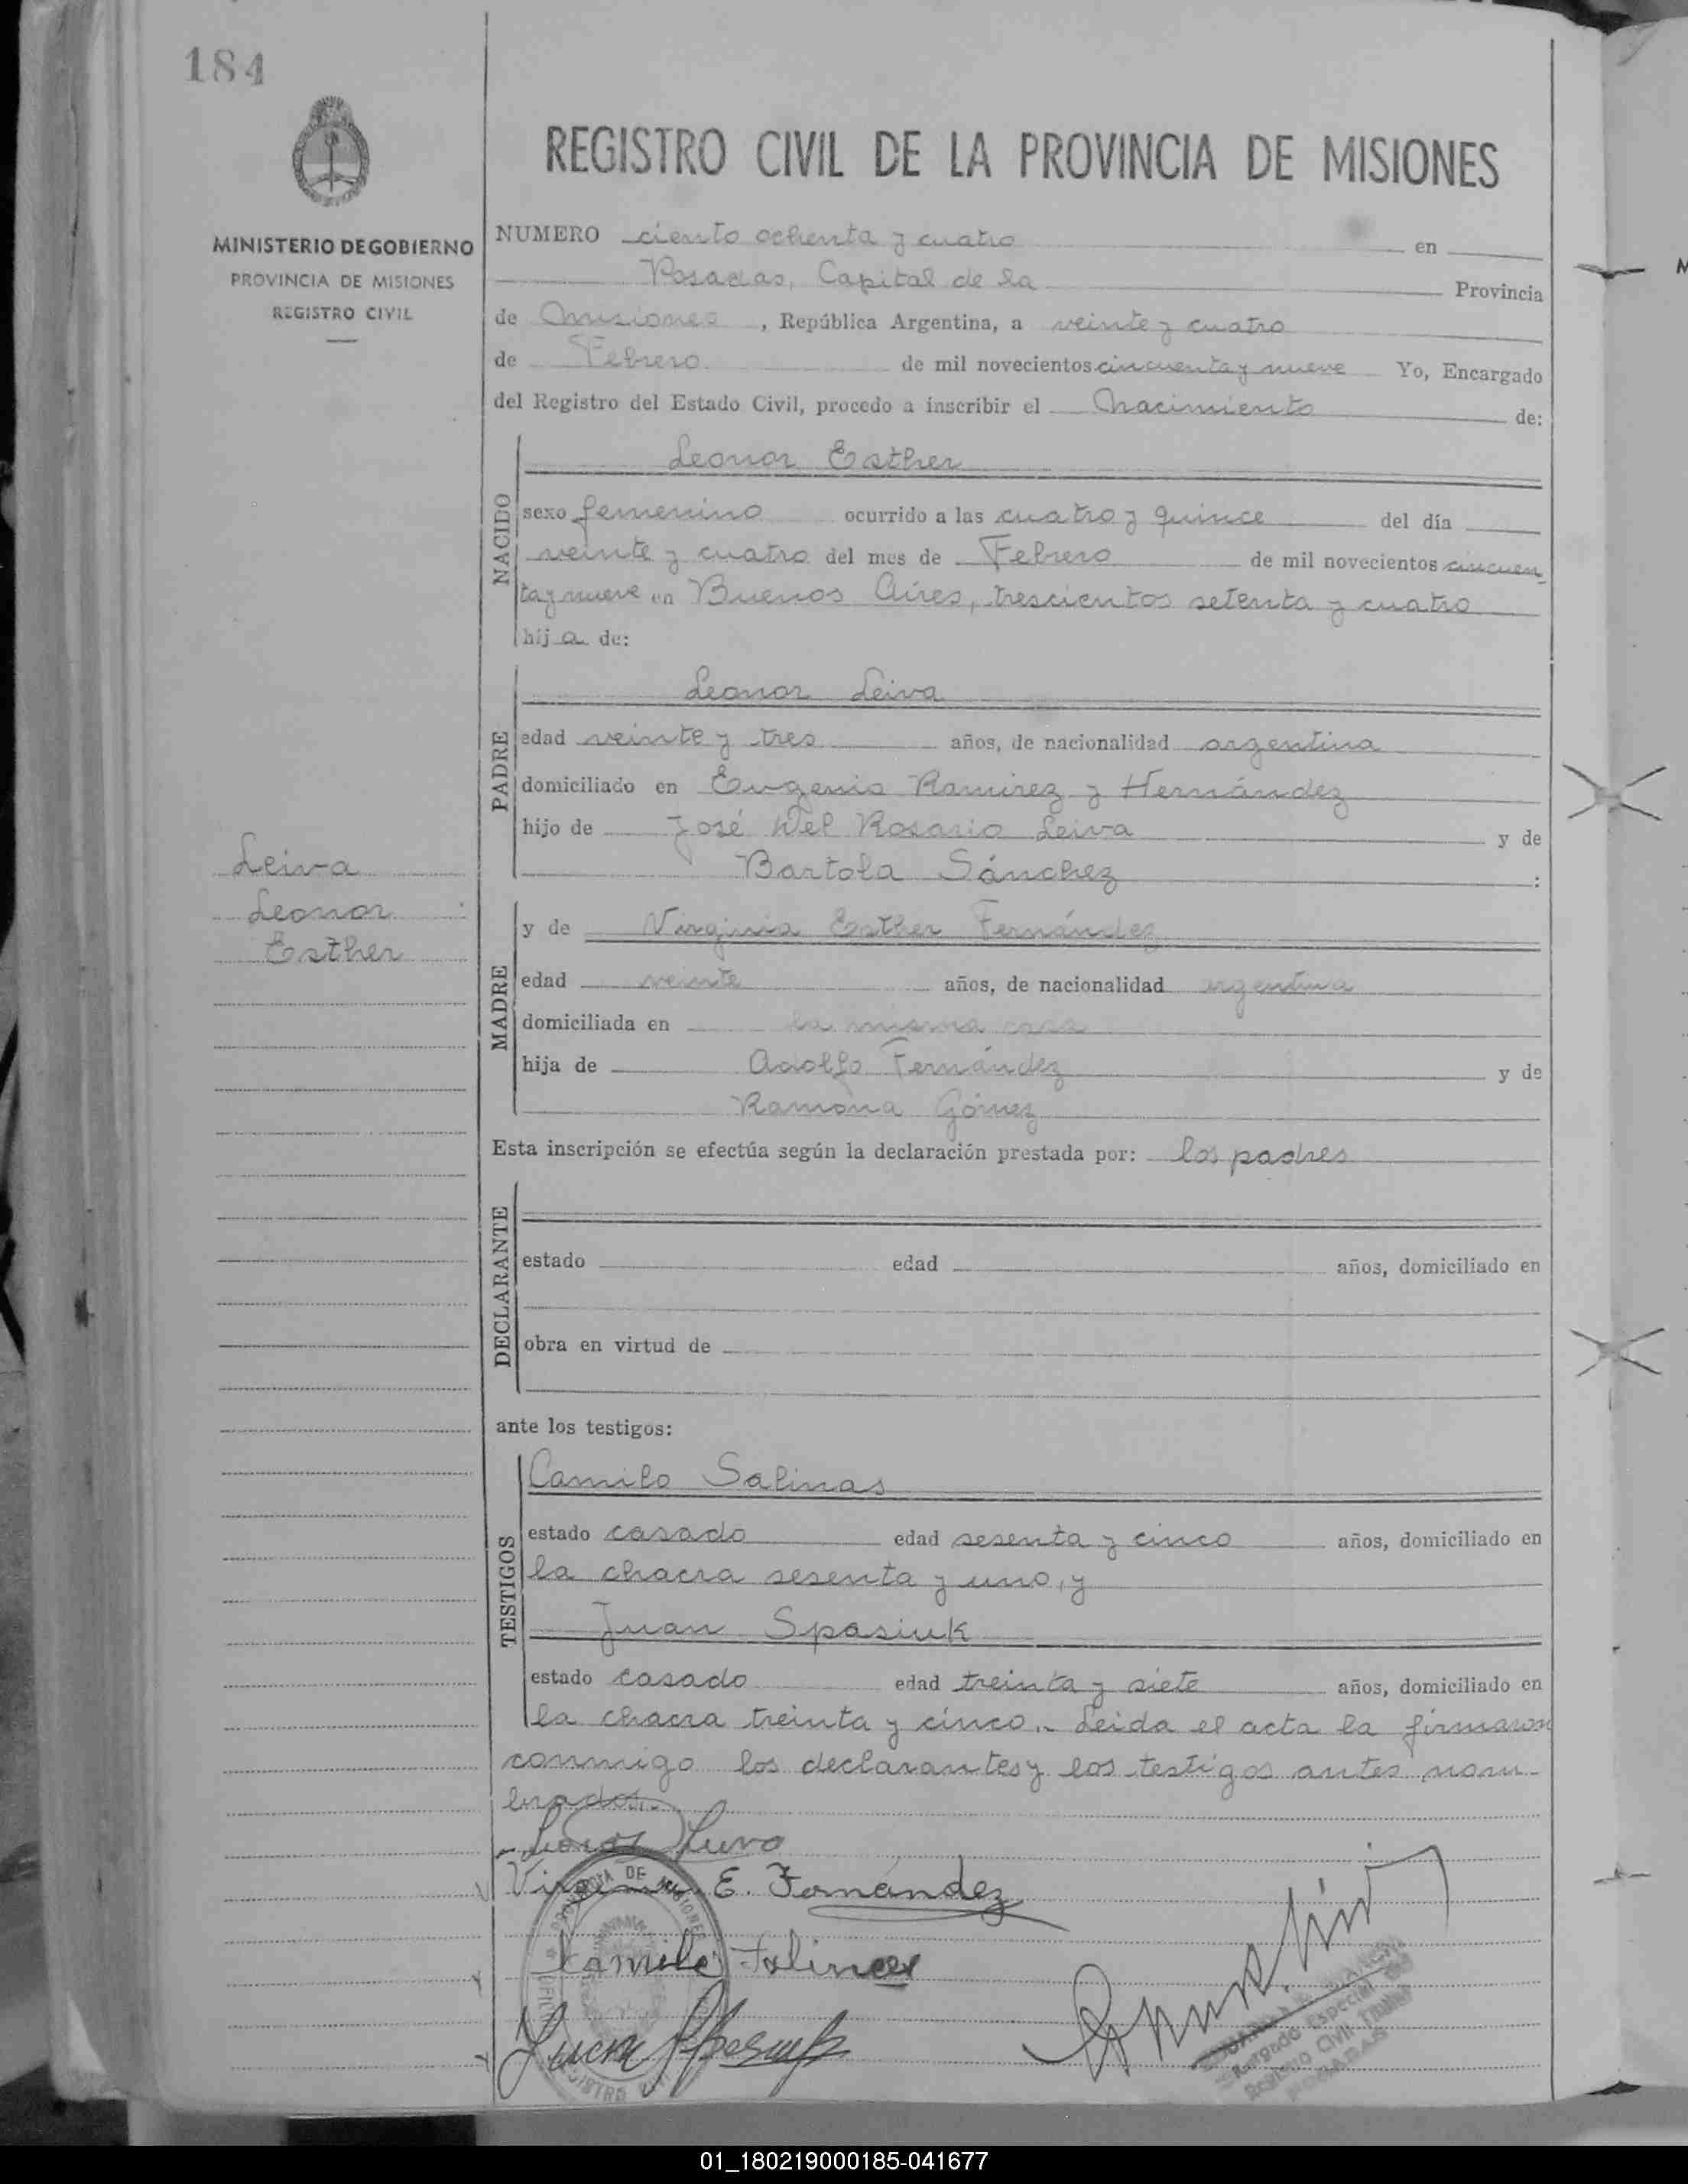 184
REGISTRO CIVIL DE LA PROVINCIA DE MISIONES
MINISTERIO DE GOBIERNO
PROVINCIA DE MISIONES
REGISTRO CIVIL
NUMERO ciento ochenta y cuatro en
Posadas, Capital de la Provincia
de Misiones, República Argentina, a veinte y cuatro
de Febrero de mil novecientos cincuenta y nueve Yo, Encargado
del Registro del Estado Civil, procedo a inscribir el Nacimiento de:
NACIDO
Leonor Esther
sexo femenino ocurrido a las cuatro y quince del día
veinte y cuatro del mes de Febrero de mil novecientos cincuen
ta y nueve en Buenos Aires, trescientos setenta y cuatro
hija de:
PADRE
Leonor Leiva
edad veinte y tres años, de nacionalidad argentina
domiciliado en Eugenio Ramirez y Hernández
hijo de José Del Rosario Leiva y de
Bartola Sánchez :
Leiva
Leonor
Esther
MADRE
y de Virginia Esther Fernández
edad veinte años, de nacionalidad argentina
domiciliada en la misma casa
hija de Adolfo Fernández y de
Ramona Gómez
Esta inscripción se efectúa según la declaración prestada por: los padres
DECLARANTE
estado edad años, domiciliado en
obra en virtud de
ante los testigos:
TESTIGOS
Camilo Salinas
estado casado edad sesenta y cinco años, domiciliado en
la chacra sesenta y uno, y
Juan Spasiuk
estado casado edad treinta y siete años, domiciliado en
la chacra treinta y cinco.- Leida el acta la firmaron
conmigo los declarantes y los testigos antes nom-
brados.-
Virginia E. Fernández
Camilo Salinas
Juan Spasiuk
PROVINCIA DE MISIONES
Encargado Especial
Registro Civil
POSADAS
01_180219000185-041677